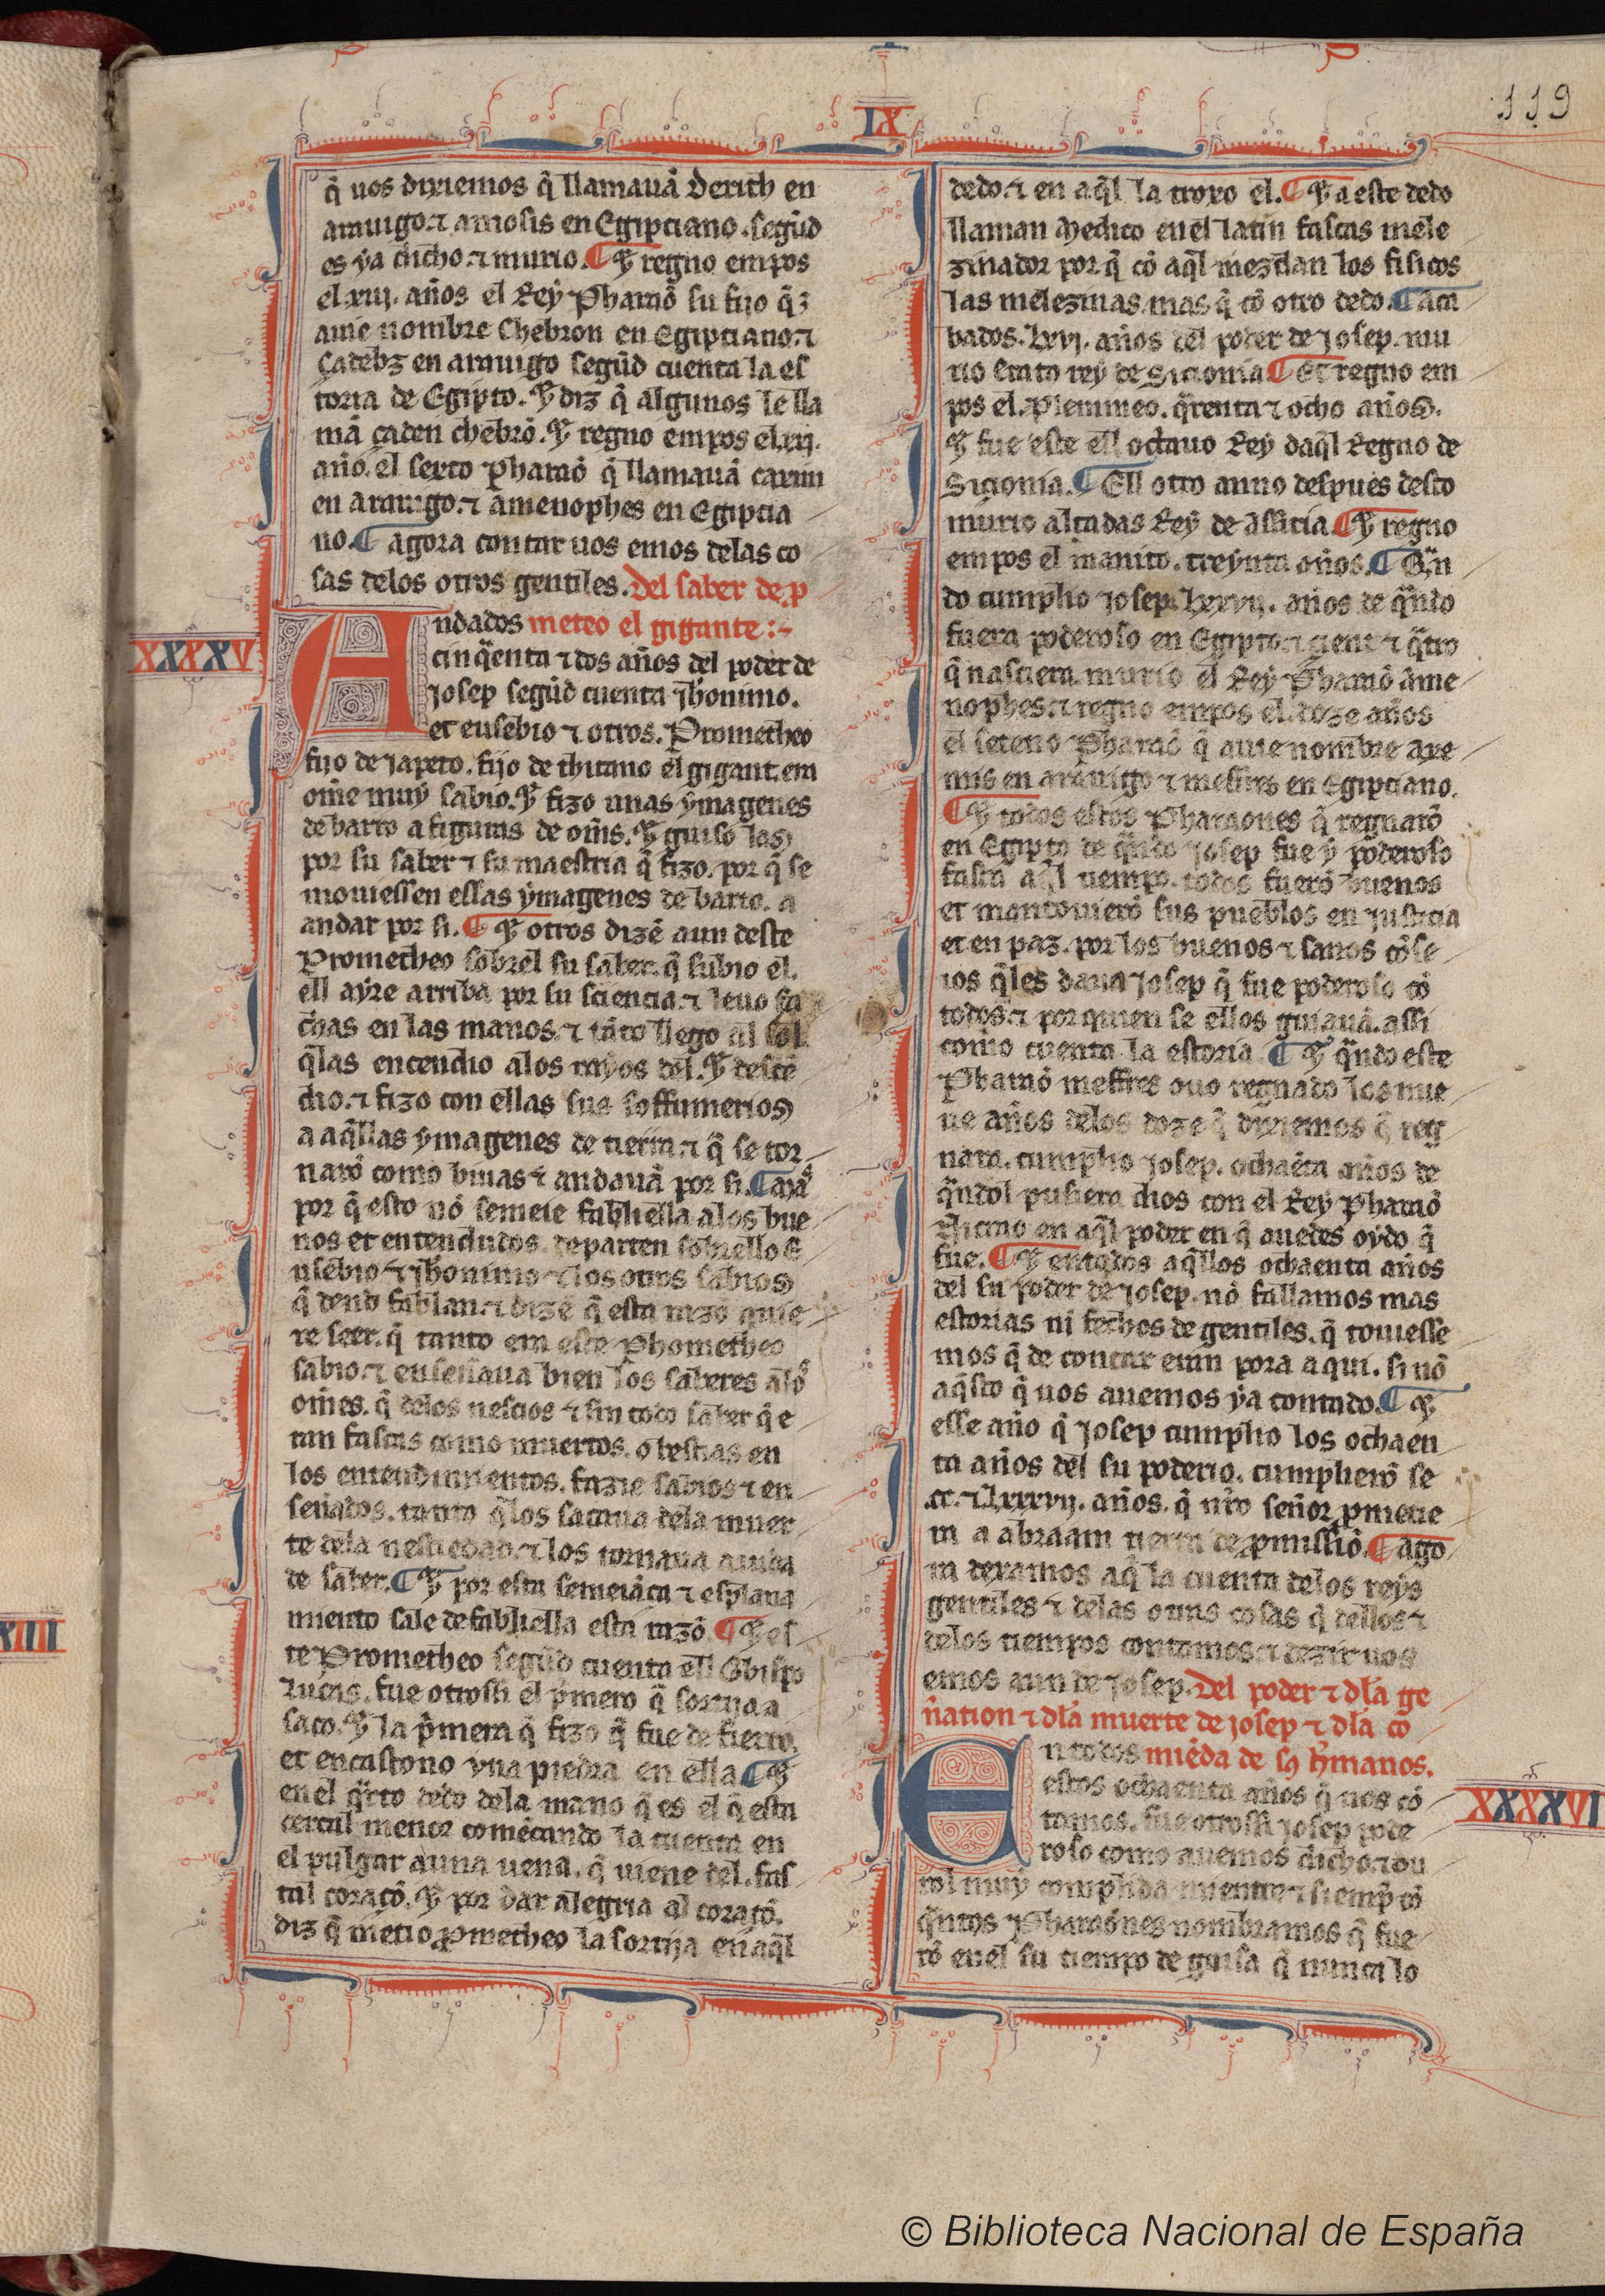 XI
119
q̃ uos dixiemos q̃ llamauã Derith en
arauigo. ⁊ amosis en Egipciano. segũd
es ya dicho. ⁊ murio. ¶ Y regno empos
el .xiij. años el Rey Pharaõ su fijo q̃
auie nombre Chebron en Egipciano. ⁊
en arauigo segũd cuenta la es
toria de Egipto. Y diz q̃ algunos le lla
mã çaden chebrõ. Y regno empos el .xij.
año. el sexto Pharaõ q̃ llamauã carim
en arauigo. ⁊ amenophes en Egipcia
no. ¶ agora contar uos emos delas co
sas delos otros gentiles. Del saber de p
ANdados meteo el gigante :-
XXXXV
cinq̃enta ⁊ dos años del poder de
Josep segũd cuenta Jhonimo.
et eusebio ⁊ otros. Prometheo
fijo de Japeto. fijo de thitano el gigant. era
om̃e muy sabio. Y fizo unas ymagenes
de barro a figuras de om̃s. Y guiso las
por su saber ⁊ su maestria q̃ fizo. por q̃ se
mouiessen ellas ymagenes de barro. a
andar por si. ¶ Y otros dizẽ aun deste
Prometheo sobrel su saber. q̃ subio el.
ell ayre arriba por su sciencia. ⁊ leuo fa
chas en las manos. ⁊ tãto llego al sol
q̃las encendio alos rayos del. Y descẽ
dio. ⁊ fizo con ellas sus soffumerios
a aq̃llas ymagenes de tierra. ⁊ q̃ se tor
narõ como biuas ⁊ andauã por si. ¶ 
por q̃ esto nõ semeie fabliella alos bue
nos et entendudos. departen sobrello E
usebio ⁊ Jhonimo ⁊ los otros sabios
q̃ dend fablan. ⁊ dizẽ q̃ esta razõ quie
re seer. q̃ tanto era este Phometheo
sabio. ⁊ enseñaua bien los saberes alos
om̃es. q̃ delos nescios ⁊ sin todo saber q̃ e
ran fascas como muertos. o bestias en
los entendimientos. fazie sabios ⁊ en
señados. tanto q̃ los sacaua dela muer
te dela nesciedad. ⁊ los tornaua a uida
de saber. ¶ Y por esta semeiãça ⁊ esplana
miento sale de fabliella esta razõ. ¶ Y es
te Prometheo segũd cuenta ell Obispo
Lucas. fue otrossi el p̃mero q̃ sortija a
saco. Y la p̃mera q̃ fizo q̃ fue de fierro.
et encastono yna piedra en ella. ¶ Y
en el q̃rto dedo dela mano q̃ es el q̃ esta
cercal menor comẽçando la cuenta en
el pulgar a una uena. q̃ uiene del. fas
tal coraçõ. Y por dar alegria al coraçõ.
diz q̃ metio Prometheo la sortija en aq̃l
dedo. ⁊ en aq̃l la troxo el. ¶ Y a este dedo
llaman Medico en el latin fascas mele
zinador por q̃ cõ aq̃l mezclan los fisicos
las melezinas. mas q̃ cõ otro dedo. ¶ aca
bados. lxvj. años del poder de Josep. mu
rio Erato rey de Sicionia. ¶ Et regno em
pos el. Plemmeo. q̃renta ⁊ ocho años.
Y fue este ell octauo Rey daq̃l Regno de
Sicionia. ¶ Ell otro anno despues desto
murio altadas Rey de assiria. ¶ Y regno
empos el manito. treynta años. ¶ Q̃n
do cumplio Josep. lxxvij. años de q̃ndo
fuera poderoso en Egipto. ⁊ cient ⁊ q̃tro
q̃ nasciera. murio el Rey Pharaõ ame
nophes. ⁊ regno empos el. doze años
el seteno Pharaõ q̃ auie nombre axe
mis en arauigo ⁊ meffres en Egipciano.
¶ Y todos estos Pharaones q̃ regnarõ
en Egipto de q̃ndo Josep fue y poderoso
fasta aq̃l tiempo. todos fuerõ buenos
et mantouierõ sus pueblos en justicia
et en paz. por los buenos ⁊ sanos cõse
ios q̃les daua Josep q̃ fue poderoso cõ
todos. ⁊ por quien se ellos guiauã. assi
como cuenta la estoria. ¶ Y q̃ndo este
Pharaõ meffres ouo regnado los nue
ue años delos doze q̃ dixiemos q̃ reg
nara. cumplio Josep. ochaẽta años de
q̃ndol pusiera dios con el Rey Pharaõ
en aq̃l poder en q̃ auedes oydo q̃
fue. ¶ Y entados aq̃llos ochaenta años
del su poder de Josep. nõ fallamos mas
estorias ni fechos de gentiles. q̃ touiesse
mos q̃ de contar eran pora aqui. si nõ
aq̃sto q̃ uos auemos ya contado. ¶ Y
esse año q̃ Josep cumplio los ochaen
ta años del su poderio. cumplierõ se
.cc. ⁊ lxxxvij. años. q̃ nr̃o señor pmetie
ra a abraam tierra de pmissiõ. ¶ ago
ra dexamos aq̃ la cuenta delos reys
gentiles ⁊ delas otras cosas q̃ dellos ⁊
delos tiempos contamos. ⁊ dezir uos
emos aun de Josep. Del poder ⁊ dla ge
ñation ⁊ dla muerte de Josep ⁊ dla cõ
EN todos miẽda de sꝯ h̃manos.
XXXXVI
estos ochaenta años q̃ uos cõ
tamos. fue otrossi Josep pode
roso como auemos dicho. ⁊ du
rol muy complida mientre. ⁊ siemp̃ cõ
q̃ntos Pharaones nombramos q̃ fue
rõ en el su tiempo de guisa q̃ nunca lo
XIII
© Biblioteca Nacional de España